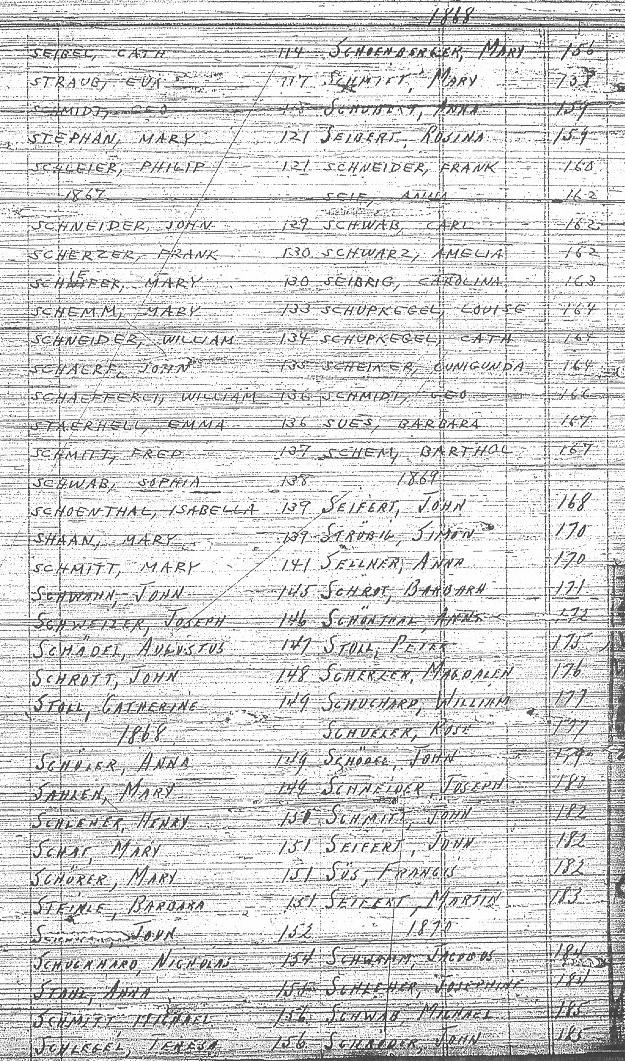 SEIBEL, CATH 114
STRAUB, EVA 117
SCHMIDT, GEO
STEPHAN, MARY 121
SCHLEIER, PHILIP 121
1867
SCHNEIDER, JOHN 129
SCHERZER, FRANK 130
SCHÄFER, MARY 130
SCHEMM, MARY 133
SCHNEIDER, WILLIAM 134
SCHAERF, JOHN 135
SCHAEFFERLI, WILLIAM 136
STAERHELL, EMMA 136
SCHMITT, FRED 137
SCHWAB, SOPHIA 138
SCHOENTHAL, ISABELLA 139
SHAAN, MARY 139
SCHMITT, MARY 141
SCHWANN, JOHN 145
SCHWEIZER, JOSEPH 146
SCHÄDEL, AUGUSTUS 147
SCHROTT, JOHN 148
STOLL, CATHERINE 149
1868
SCHÜLER, ANNA 149
SAHLEN, MARY 149
SCHLEHER, HENRY 150
SCHAF, MARY 151
SCHÖRER, MARY 151
STEINLE, BARBARA 151
JOHN 152
SCHUCKHARD, NICHOLAS 154
STAHL, ANNA 155
SCHMITT MICHAEL 156
SCHLEGEL, TERESA 156
1868
SCHOENBERGER, MARY 156
SCHMITT, MARY
SCHUBERT, ANNA 159
SEIBERT, ROSINA 159
SCHNEIDER, FRANK 160
SEIF, ANNA 162
SCHWAB, CARL 162
SCHWARZ, AMELIA 162
SEIBRIG, CAROLINA 163
SCHUPKEGEL, LOUISE 164
SCHUPKEGEL, CATH 164
SCHEIKER, CUNIGUNDA 164
SCHMIDT, GEO 166
SUES, BARBARA 167
SCHEM, BARTHOL 167
1869
SEIFERT, JOHN 168
STRÖBIL, SIMON 170
SELLNER, ANNA 170
SCHROT, BARBARA 171
SCHÖNTHAL, ANNA 172
STOLL, PETER 175
SCHERZER, MAGDALEN 176
SCHUCHARD, WILLIAM 177
SCHUELER, ROSE 177
SCHÖDEL, JOHN 179
SCHNEIDER, JOSEPH 180
SCHMITT, JOHN 182
SEIFERT, JOHN 182
SÜS, FRANCIS 182
SEIFERT, MARTIN 183
1870
SCHWAMM, JACOBUS 184
SCHLEHER, JOSEPHINE 184
SCHWAB MICHAEL 185
SCHRÖDER, JOHN 185